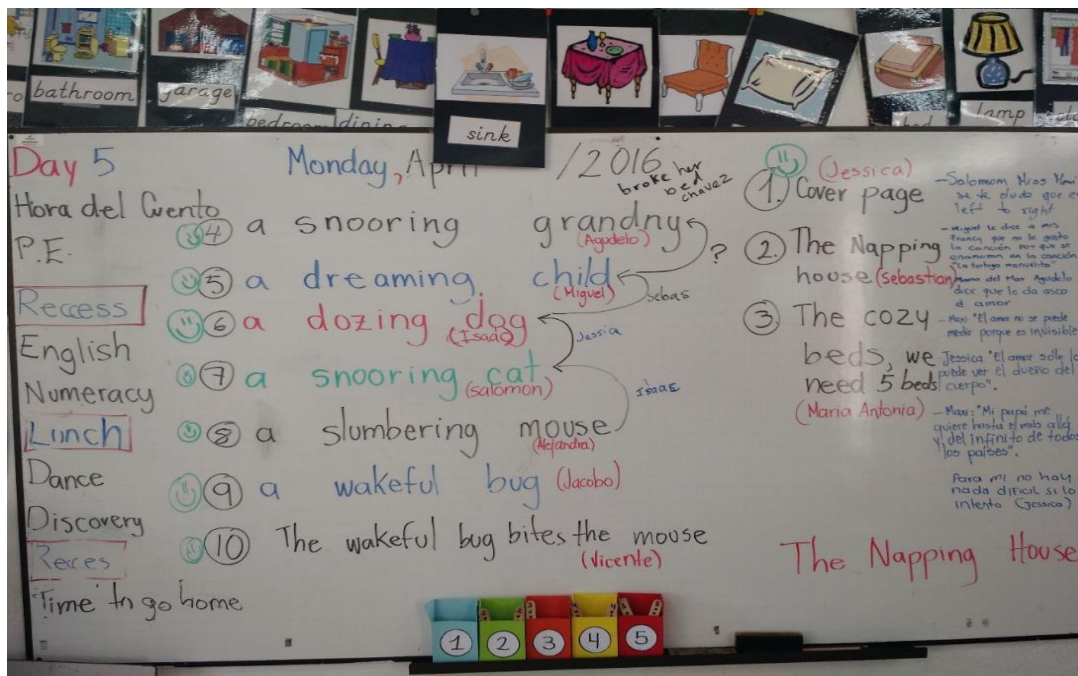 bathroom
garage
bedroom
dining
sink
bed
lamp
Day 5
Monday, April /2016
Hora del Cuento
P.E.
Reccess
English
Numeracy
Lunch
Dance
Discovery
Recces
Time to go home
broke her
bed
chavez
4 a snooring grandny
(Agudelo)
?
5 a dreaming child
(Miguel)
Sebas
6 a dozing dog
(Isaac)
Jessia
7 a snooring cat
(salomon)
Isaac
8 a slumbering mouse
(Alejandra)
9 a wakeful bug (Jacobo)
10 The wakeful bug bites the mouse
(Vicente)
(Jessica)
1. Cover page
2. The Napping
house (Sebastian)
3. The cozy
beds, we
need 5 beds
(Maria Antonia)
- Salomom Miss
se le olvido que es
left to right
- Miguel le dice a mis
Francy que no le gusto
la canción por que se
enamoran en la canción
"La tortuga manuelita"
del Mar Agudelo
dice que le da asco
el amor
- Maxi "El amor no se puede
medir porque es invisible
Jessica "El amor sólo lo
puede ver el dueño del
cuerpo".
- Maxi: "Mi papá me
quiere hasta el más allá
y del infinito de todos
los países".
Para mi no hay
nada dificil si lo
intento (Jessica)
The Napping House
1
2
3
4
5